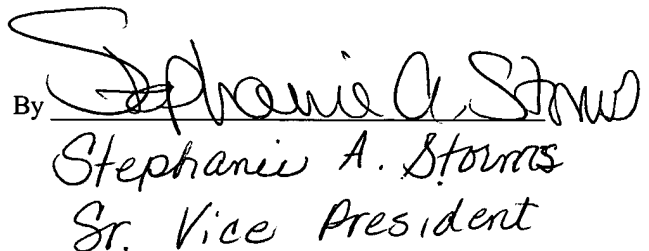 By Stephanie A. Storms
Stephanie A. Storms
Sr. Vice President